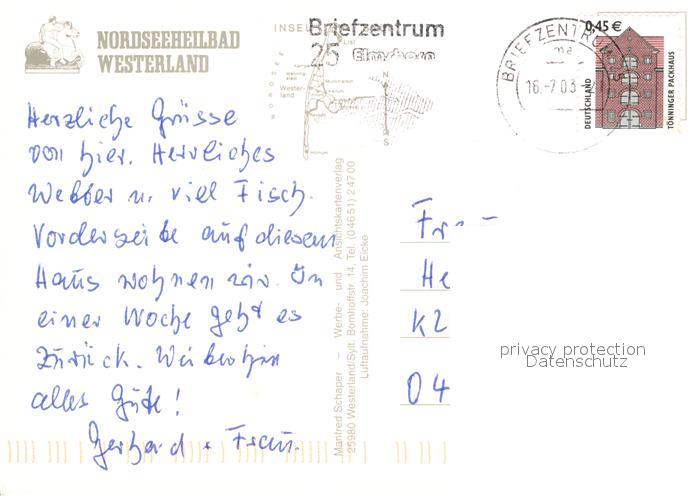 NORDSEEHEILBAD
WESTERLAND
INSEL
NORDSEE
List
Wester-
land
N
S
Briefzentrum
25 Elmshorn
BRIEFZENTRUM 25
ma
16.-7.03
0,45 €
DEUTSCHLAND
TÖNNINGER PACKHAUS
Herzliche Grüsse
von hier. Herrliches
Wetter u. viel Fisch.
Vorderseite auf diesem
Haus wohnen wir. In
einer Woche geht es
zurück. Weiterhin
alles Gute!
Gerhard + Frau.
Manfred Schaper – Werbe- und Ansichtskartenverlag
25980 Westerland/Sylt, Bomhoffstr. 14, Tel. (04651) 24700
Luftaufnahme: Joachim Eicke
Fr
He
K2
04
privacy protection
Datenschutz